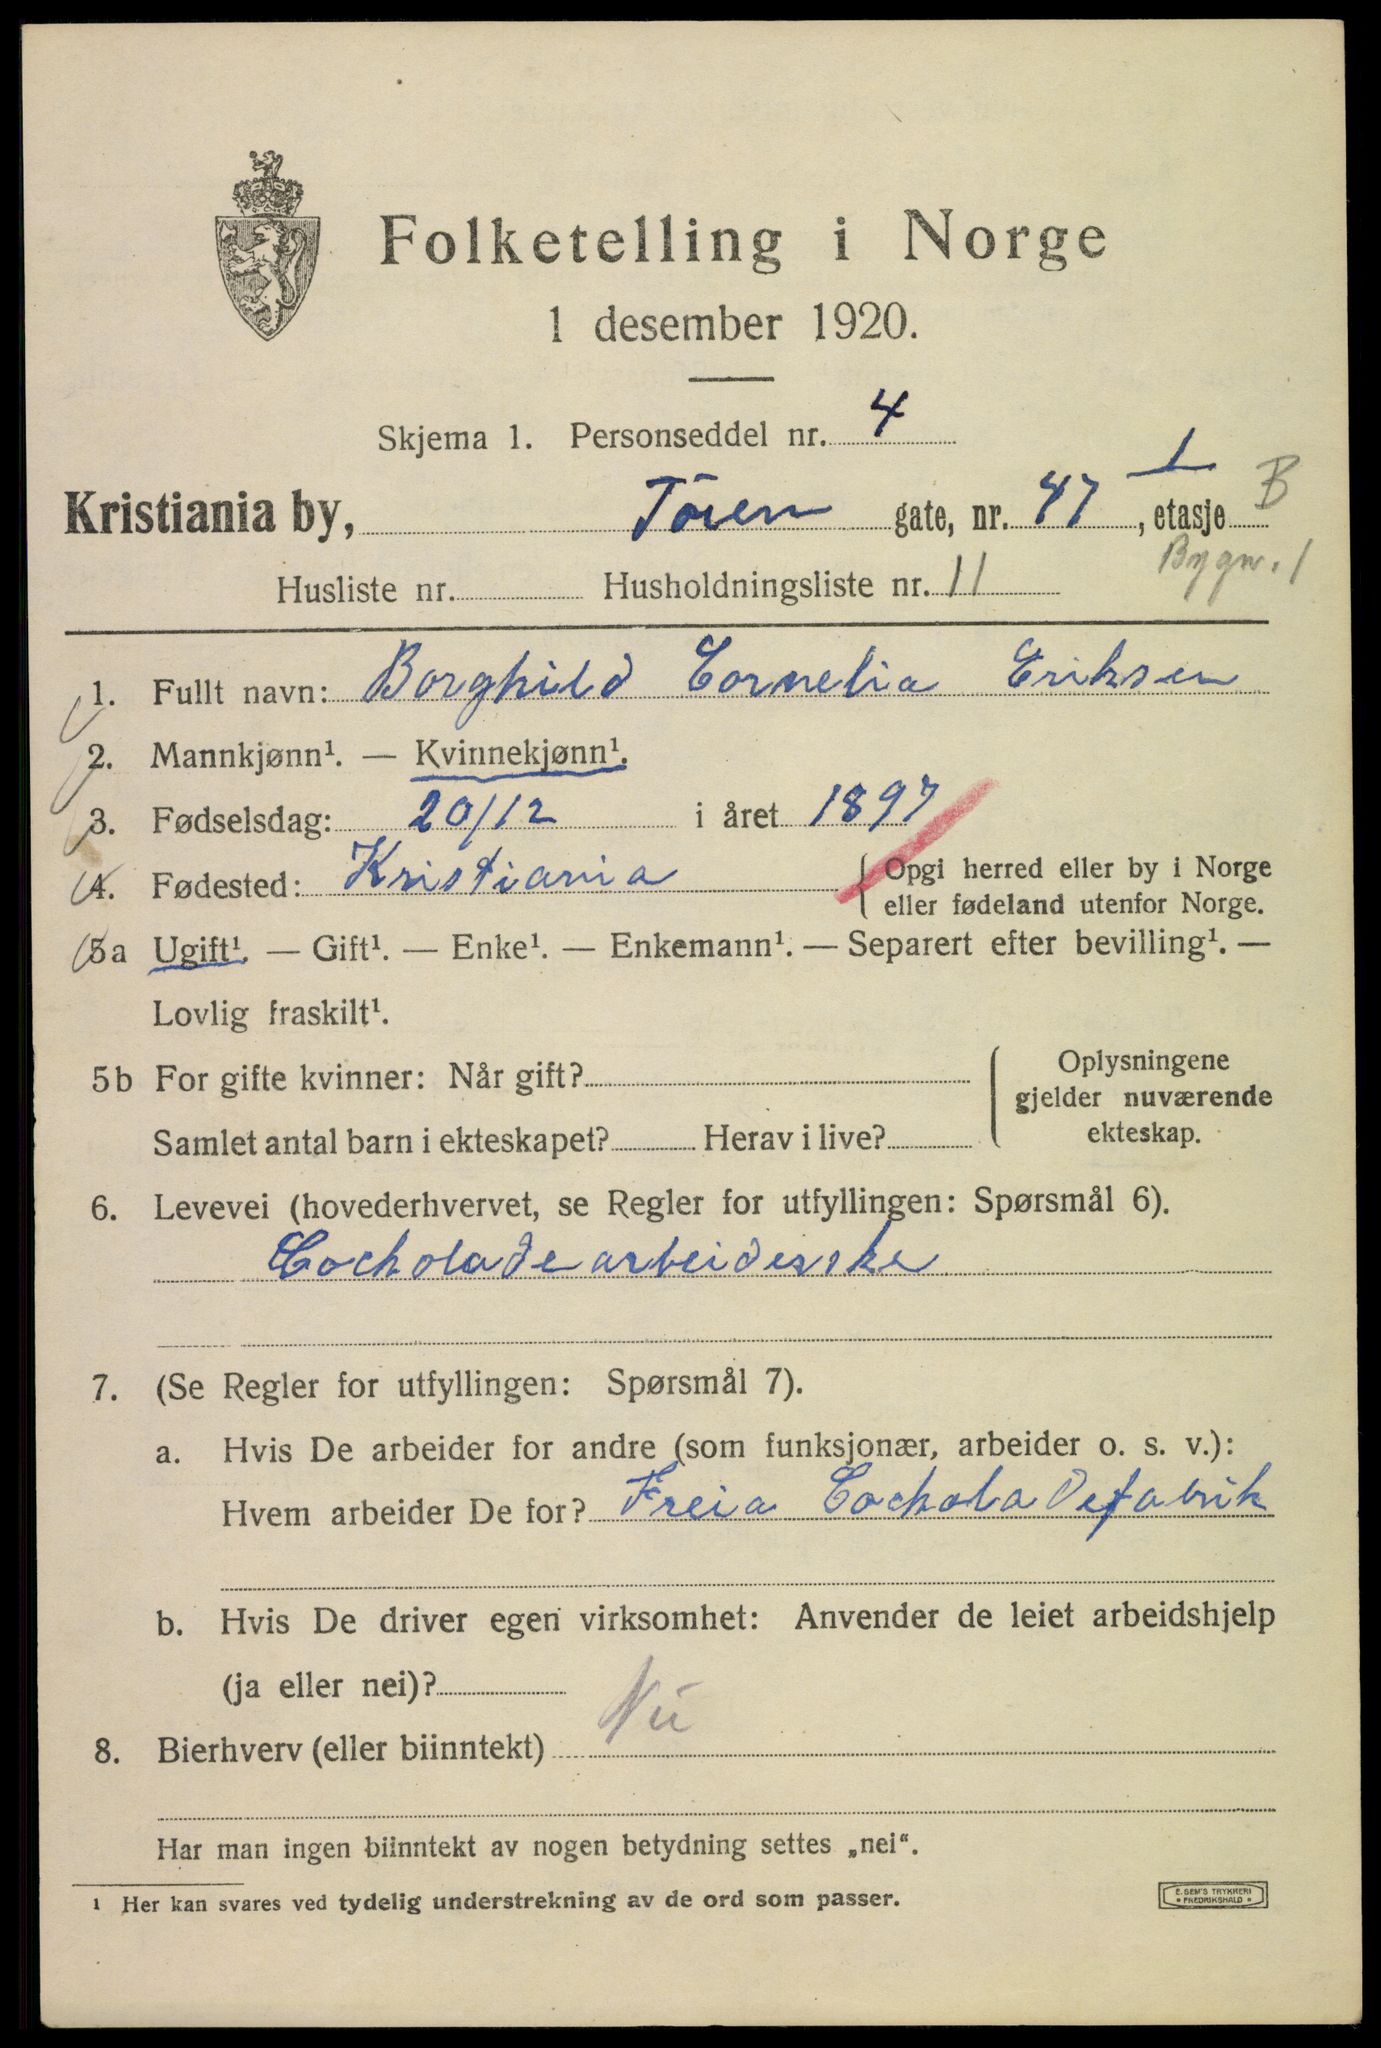 Folketelling i Norge
1 desember 1920.
Skjema 1. Personseddel nr. 4
Kristiania by, Töien gate, nr. 47, etasje 1 B
Bygn. 1
Husliste nr. Husholdningsliste nr. 11
1. Fullt navn: Borghild Cornelia Eriksen
2. Mannkjønn¹. — Kvinnekjønn¹.
3. Fødselsdag: 20/12 i året 1897
4. Fødested: Kristiania { Opgi herred eller by i Norge
eller fødeland utenfor Norge.
5a Ugift¹. — Gift¹. — Enke¹. — Enkemann¹. — Separert efter bevilling¹. —
Lovlig fraskilt¹.
5b For gifte kvinner: Når gift?
Samlet antal barn i ekteskapet? Herav i live?
Oplysningene
gjelder nuværende
ekteskap.
6. Levevei (hovederhvervet, se Regler for utfyllingen: Spørsmål 6).
Cocholadearbeiderske
7. (Se Regler for utfyllingen: Spørsmål 7).
a. Hvis De arbeider for andre (som funksjonær, arbeider o. s. v.):
Hvem arbeider De for? Freia Cocholadefabrik
b. Hvis De driver egen virksomhet: Anvender de leiet arbeidshjelp
(ja eller nei)?
8. Bierhverv (eller biinntekt) Nei
Har man ingen biinntekt av nogen betydning settes „nei“.
1 Her kan svares ved tydelig understrekning av de ord som passer.
E. SEM'S TRYKKERI
FREDRIKSHALD